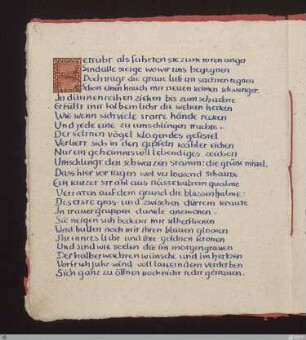 Betrübt als führten sie zum totenanger
Sind alle steige wo wir uns begegnen
Doch trägt die graue luft im sachten regnen
Schon einen hauch mit neuen keimen schwanger.
In dünnen reihen ziehen bis zum schachte
Erfüllt mit halbem licht die welken hecken
Wie wenn sich viele starre hände recken
Und jede eine zu umschlingen trachte ·
Der seltnen vögel klagendes gefistel
Verliert sich in den gipfeln kahler eichen
Nur ein geheimnisvoll lebendiges zeichen
Umschlingt den schwarzen stamm: die grüne mistel.
Dass hier vor tagen wol verlockend schaute
Ein kurzer strahl aus nässekaltem qualme
Verraten auf dem grund die blassen halme:
Das erste gras · und zwischen dürrem kraute
In trauergruppen dunkle anemonen.
Sie neigen sich bedeckt mit silberflocken
Und hüllen noch mit ihren blauen glocken
Ihr innres licht und ihre goldnen kronen
Und sind wie seelen die im morgengrauen
Der halberwachten wünsche und im herben
Vorfrühjahrwind voll lauerndem verderben
Sich ganz zu öffnen noch nicht recht getrauen.